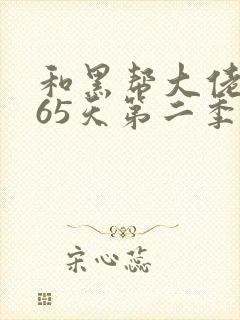 和黑帮大佬
65天第二季
宋心蕊